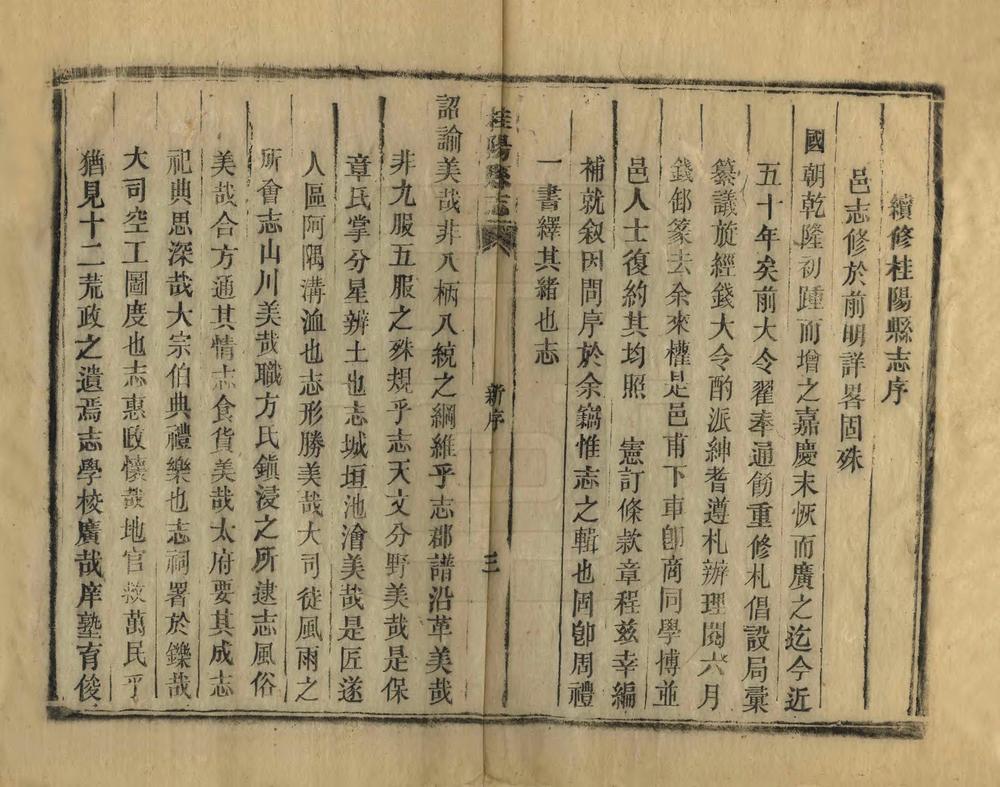 續修桂陽縣志序
邑志修於前明詳畧固殊
國朝乾隆初踵而增之嘉慶末恢而廣之迄今近
五十年矣前大令翟奉通飭重修札倡設局彙
纂議旋經錢大令酌派紳耆遵札辦理閱六月
錢卸篆去余來權是邑甫下車卽商同學博並
邑人士復約其均照 憲訂條款章程兹幸編
補就叙因問序於余竊惟志之輯也固卽周禮
一書繹其緒也志
桂陽縣志
新序
三
詔諭美哉非八柄八統之綱維乎志郡譜沿革美哉
非九服五服之殊規乎志天文分野美哉是保
章氏掌分星辨土也志城垣池澮美哉是匠遂
人區阿隅溝洫也志形勝美哉大司徒風雨之
所會志山川美哉職方氏鎭浸之所逮志風俗
美哉合方通其情志食貨美哉太府要其成志
祀典思深哉大宗伯典禮樂也志祠署於鑠哉
大司空工圖度也志惠政懷哉地官救萬民乎
猶見十二荒政之遺焉志學校廣哉庠塾育俊